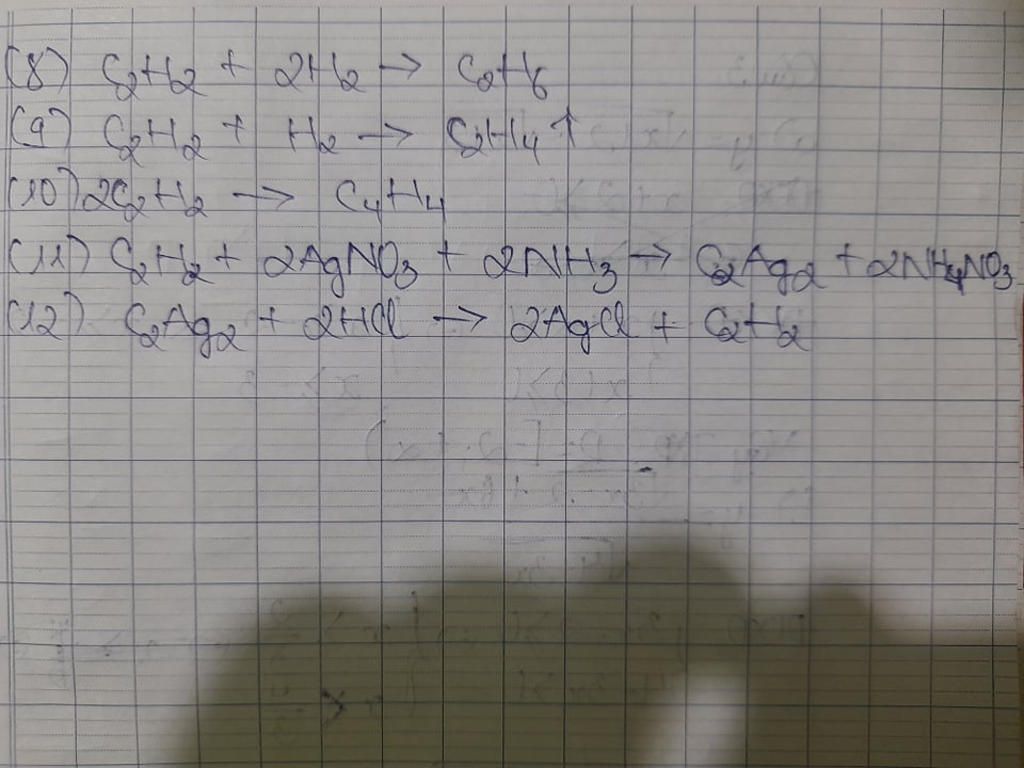 (8) C₂H₂ + 2H₂ → C₂H₆
(9) C₂H₂ + H₂ → C₂H₄↑
(10) 2C₂H₂ → C₄H₄
(11) C₂H₂ + 2AgNO₃ + 2NH₃ → C₂Ag₂ + 2NH₄NO₃
(12) C₂Ag₂ + 2HCl → 2AgCl + C₂H₂